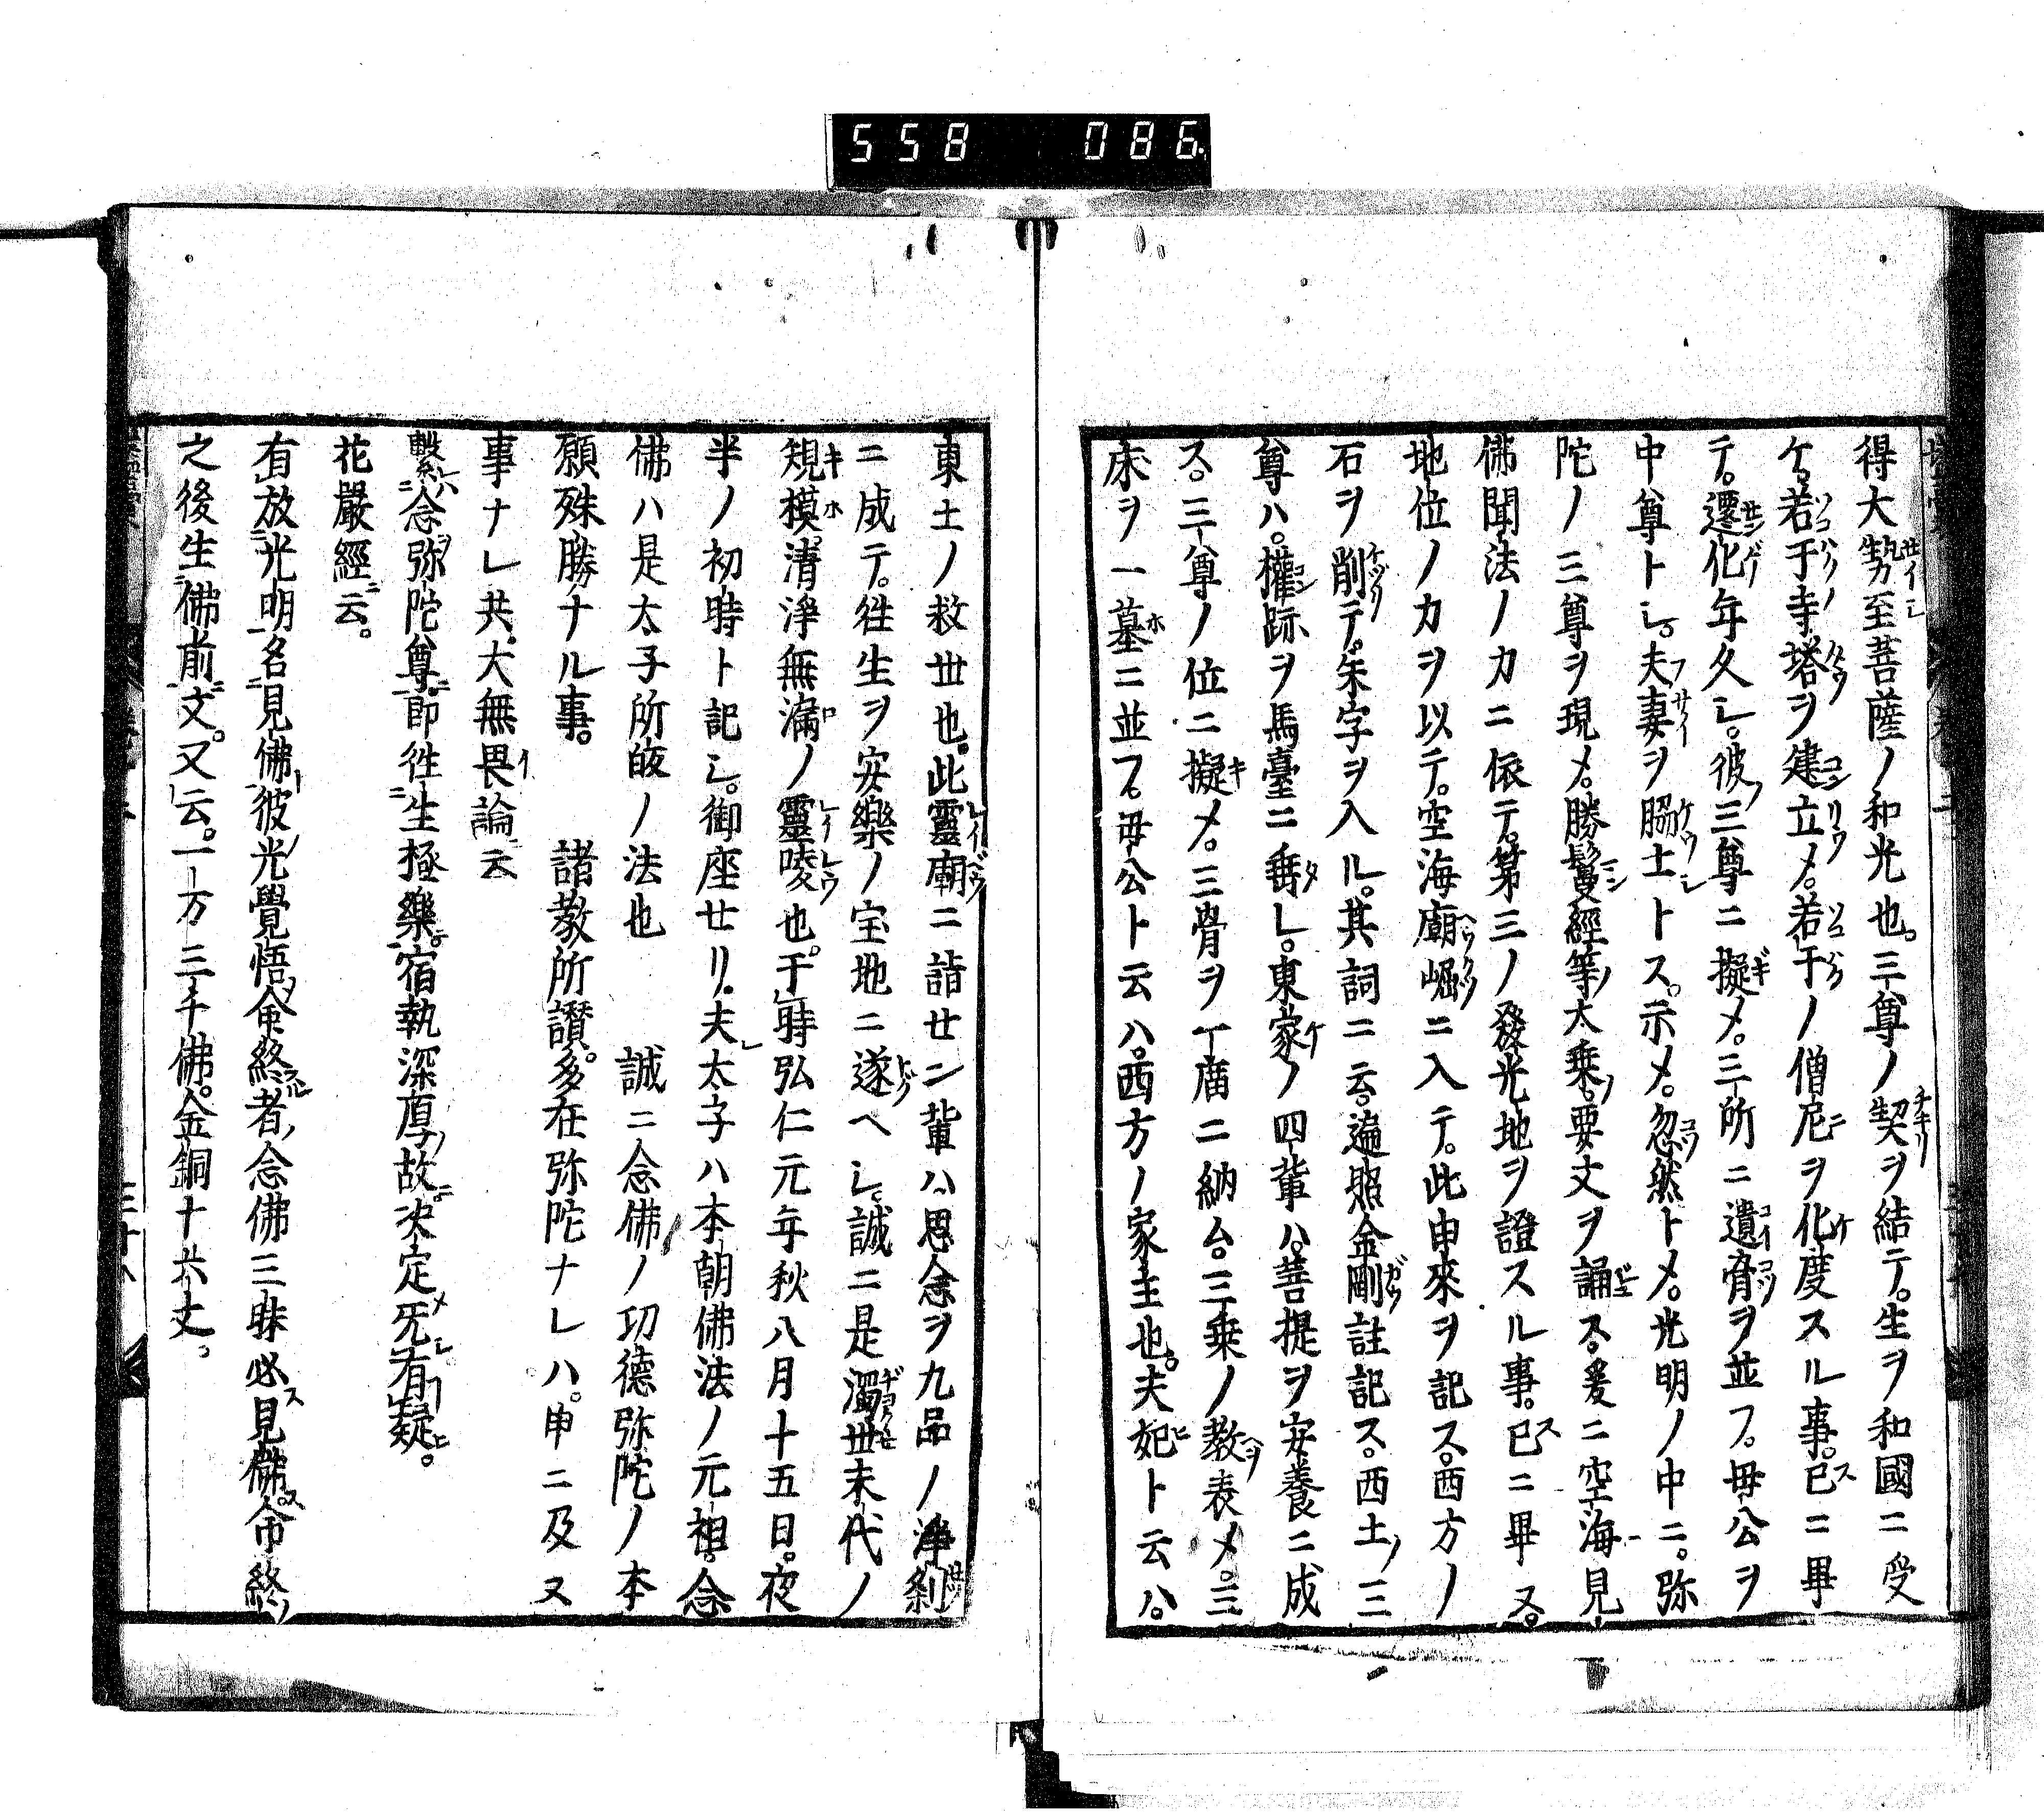 558 086
得大勢至菩薩ノ和光也。三尊ノ契ヲ結テ。生ヲ和國ニ受
ケ。若干寺塔ヲ建立メ。若干ノ僧尼ヲ化度スル事。已ニ畢
テ。遷化年久シ。彼三尊ニ擬メ。三所ニ遺骨ヲ並フ。母公ヲ
中尊トシ。夫妻ヲ脇士トス。示メ。忽然トメ。光明ノ中ニ。弥
陀ノ三尊ヲ現メ。勝鬘經等大乗。要文ヲ誦ス。爰ニ空海見
佛聞法ノカニ依テ。第三ノ發光地ヲ證スル事。已ニ畢ヌ。
地位ノカヲ以テ。空海廟崛ニ入テ。此由來ヲ記ス。西方ノ
石ヲ削テ。朱字ヲ入ル。其詞ニ云。遍照金剛註記ス。西土ノ三
尊ハ。權跡ヲ馬臺ニ垂レ。東家ノ四輩ハ。菩提ヲ安養ニ成
ス。三尊ノ位ニ擬メ。三骨ヲ一廟ニ納ム。三乗ノ教表メ。三
床ヲ一墓ニ並フ。母公ト云ハ。西方ノ家主也。夫妃ト云ハ。
東土ノ救世也。此靈廟ニ詣セン輩ハ。思念ヲ九品ノ淨刹
ニ成テ。往生ヲ安樂ノ宝地ニ遂ヘシ。誠ニ是濁世末代ノ
規模。清淨無漏ノ靈崚也。于時弘仁元年秋八月十五日。夜
半ノ初時ト記シ。御座セリ。夫太子ハ本朝佛法ノ元祖。念
佛ハ是太子所皈ノ法也 誠ニ念佛ノ功德弥陀ノ本
願殊勝ナル事。 諸教所讃。多在弥陀ナレハ。申ニ及ヌ
事ナレ共。大無畏論云
繫念弥陀尊即往生極樂。宿執深厚故決定旡有疑。
花嚴經云。
有放光明名見佛彼光覺悟命終者念佛三昧必見佛。命終
之後生佛前文。又云。一万三千佛。金銅十六丈。